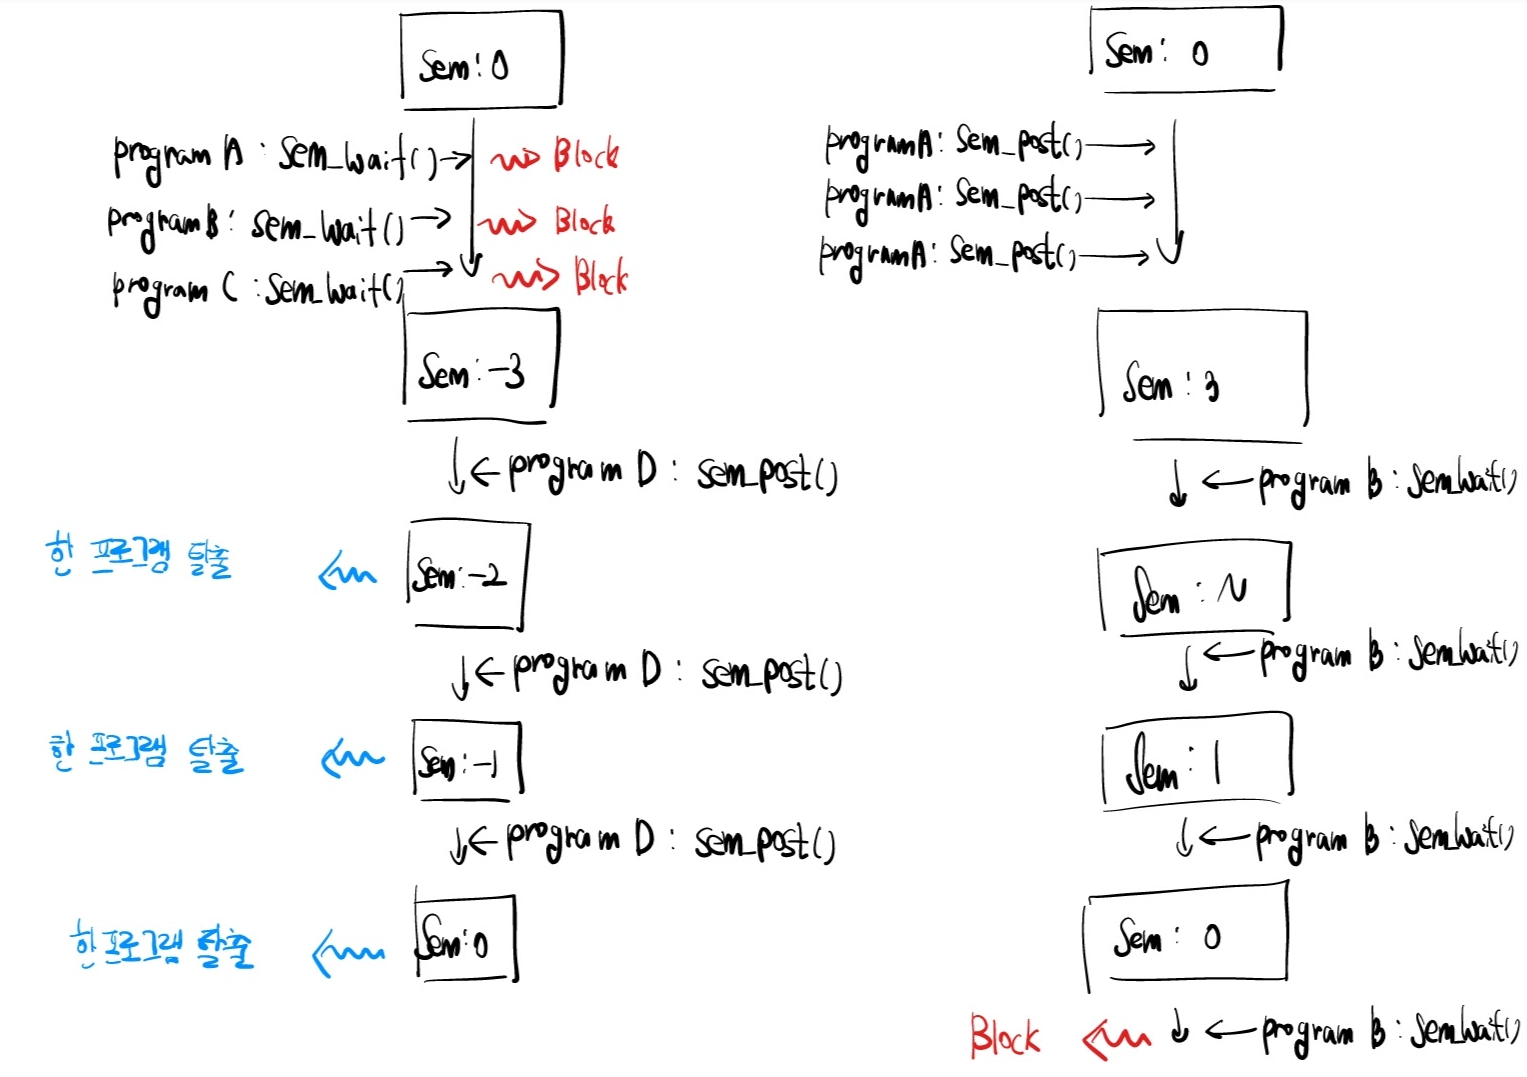 Sem: 0
program A : Sem_wait()
Block
program B : Sem_wait()
Block
program C : Sem_wait()
Block
Sem: -3
program D : Sem_post()
Sem: -2
한 프로그램 탈출
program D : Sem_post()
Sem: -1
한 프로그램 탈출
program D : Sem_post()
Sem: 0
한 프로그램 탈출
Sem: 0
program A: Sem_post()
program A: Sem_post()
program A: Sem_post()
Sem : 3
program B : Sem_wait()
Sem :
program B : Sem_wait()
Sem : 1
program B : Sem_wait()
Sem : 0
program B : Sem_wait()
Block